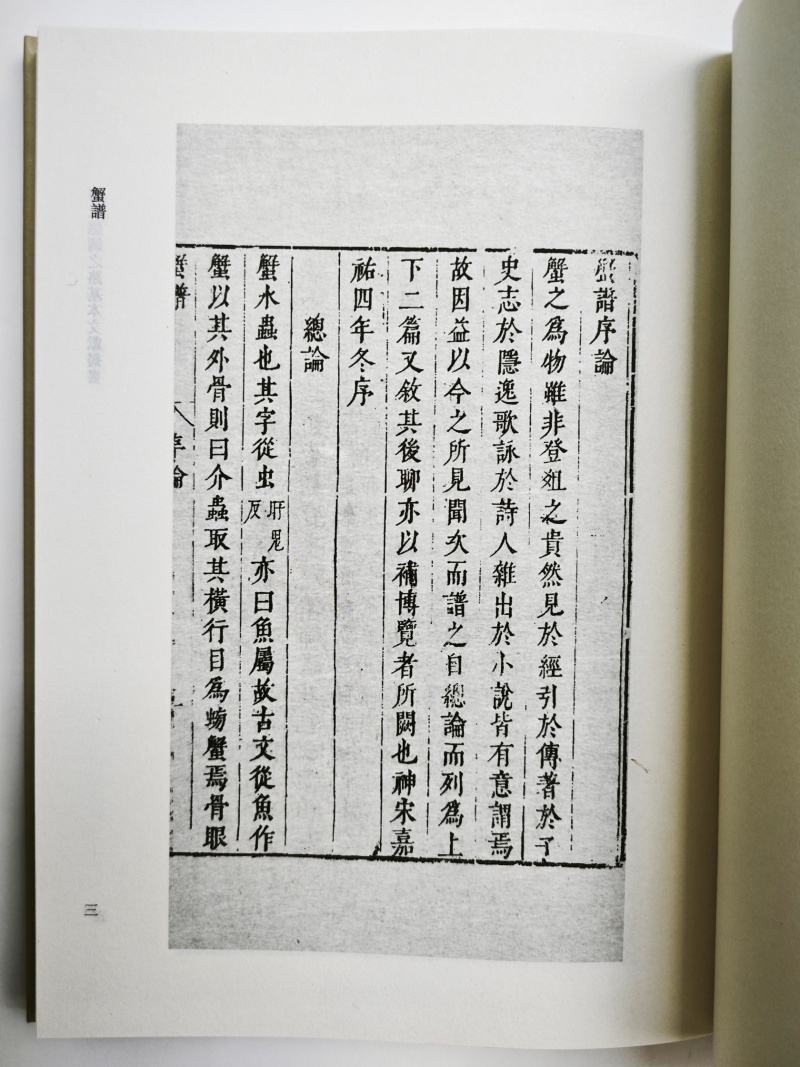 蟹譜序論
蟹之爲物雖非登俎之貴然見於經引於傳著於子
史志於隱逸歌詠於詩人雜出於小說皆有意謂焉
故因益以今之所見聞次而譜之自總論而列爲上
下二篇又敘其後聊亦以補博覽者所闕也神宋嘉
祐四年冬序
總論
蟹水蟲也其字從虫許鬼反亦曰魚屬故古文從魚作
蟹以其外骨則曰介蟲取其橫行目爲螃蟹焉骨眼
蟹譜 序論 一
蟹譜
三